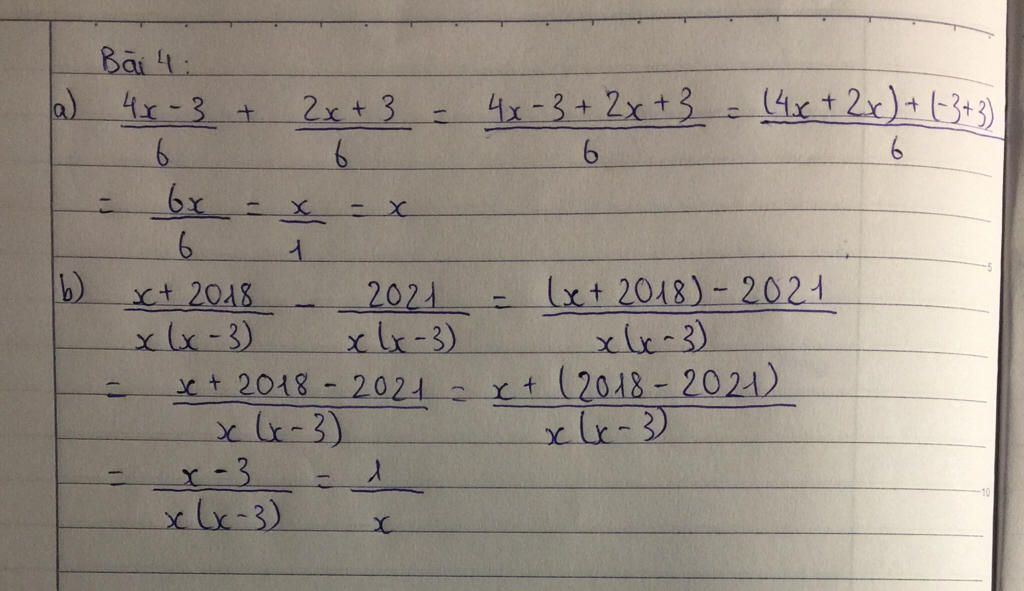 Bài 4:
a) \frac{4x-3}{6} + \frac{2x+3}{6} = \frac{4x-3+2x+3}{6} = \frac{(4x+2x)+(-3+3)}{6}
= \frac{6x}{6} = \frac{x}{1} = x
5
b) \frac{x+2018}{x(x-3)} - \frac{2021}{x(x-3)} = \frac{(x+2018)-2021}{x(x-3)}
= \frac{x+2018-2021}{x(x-3)} = \frac{x+(2018-2021)}{x(x-3)}
= \frac{x-3}{x(x-3)} = \frac{1}{x}
10